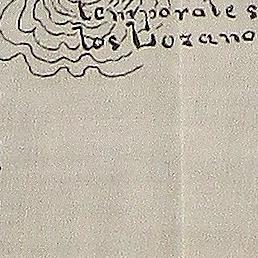 temporales
los Lozano